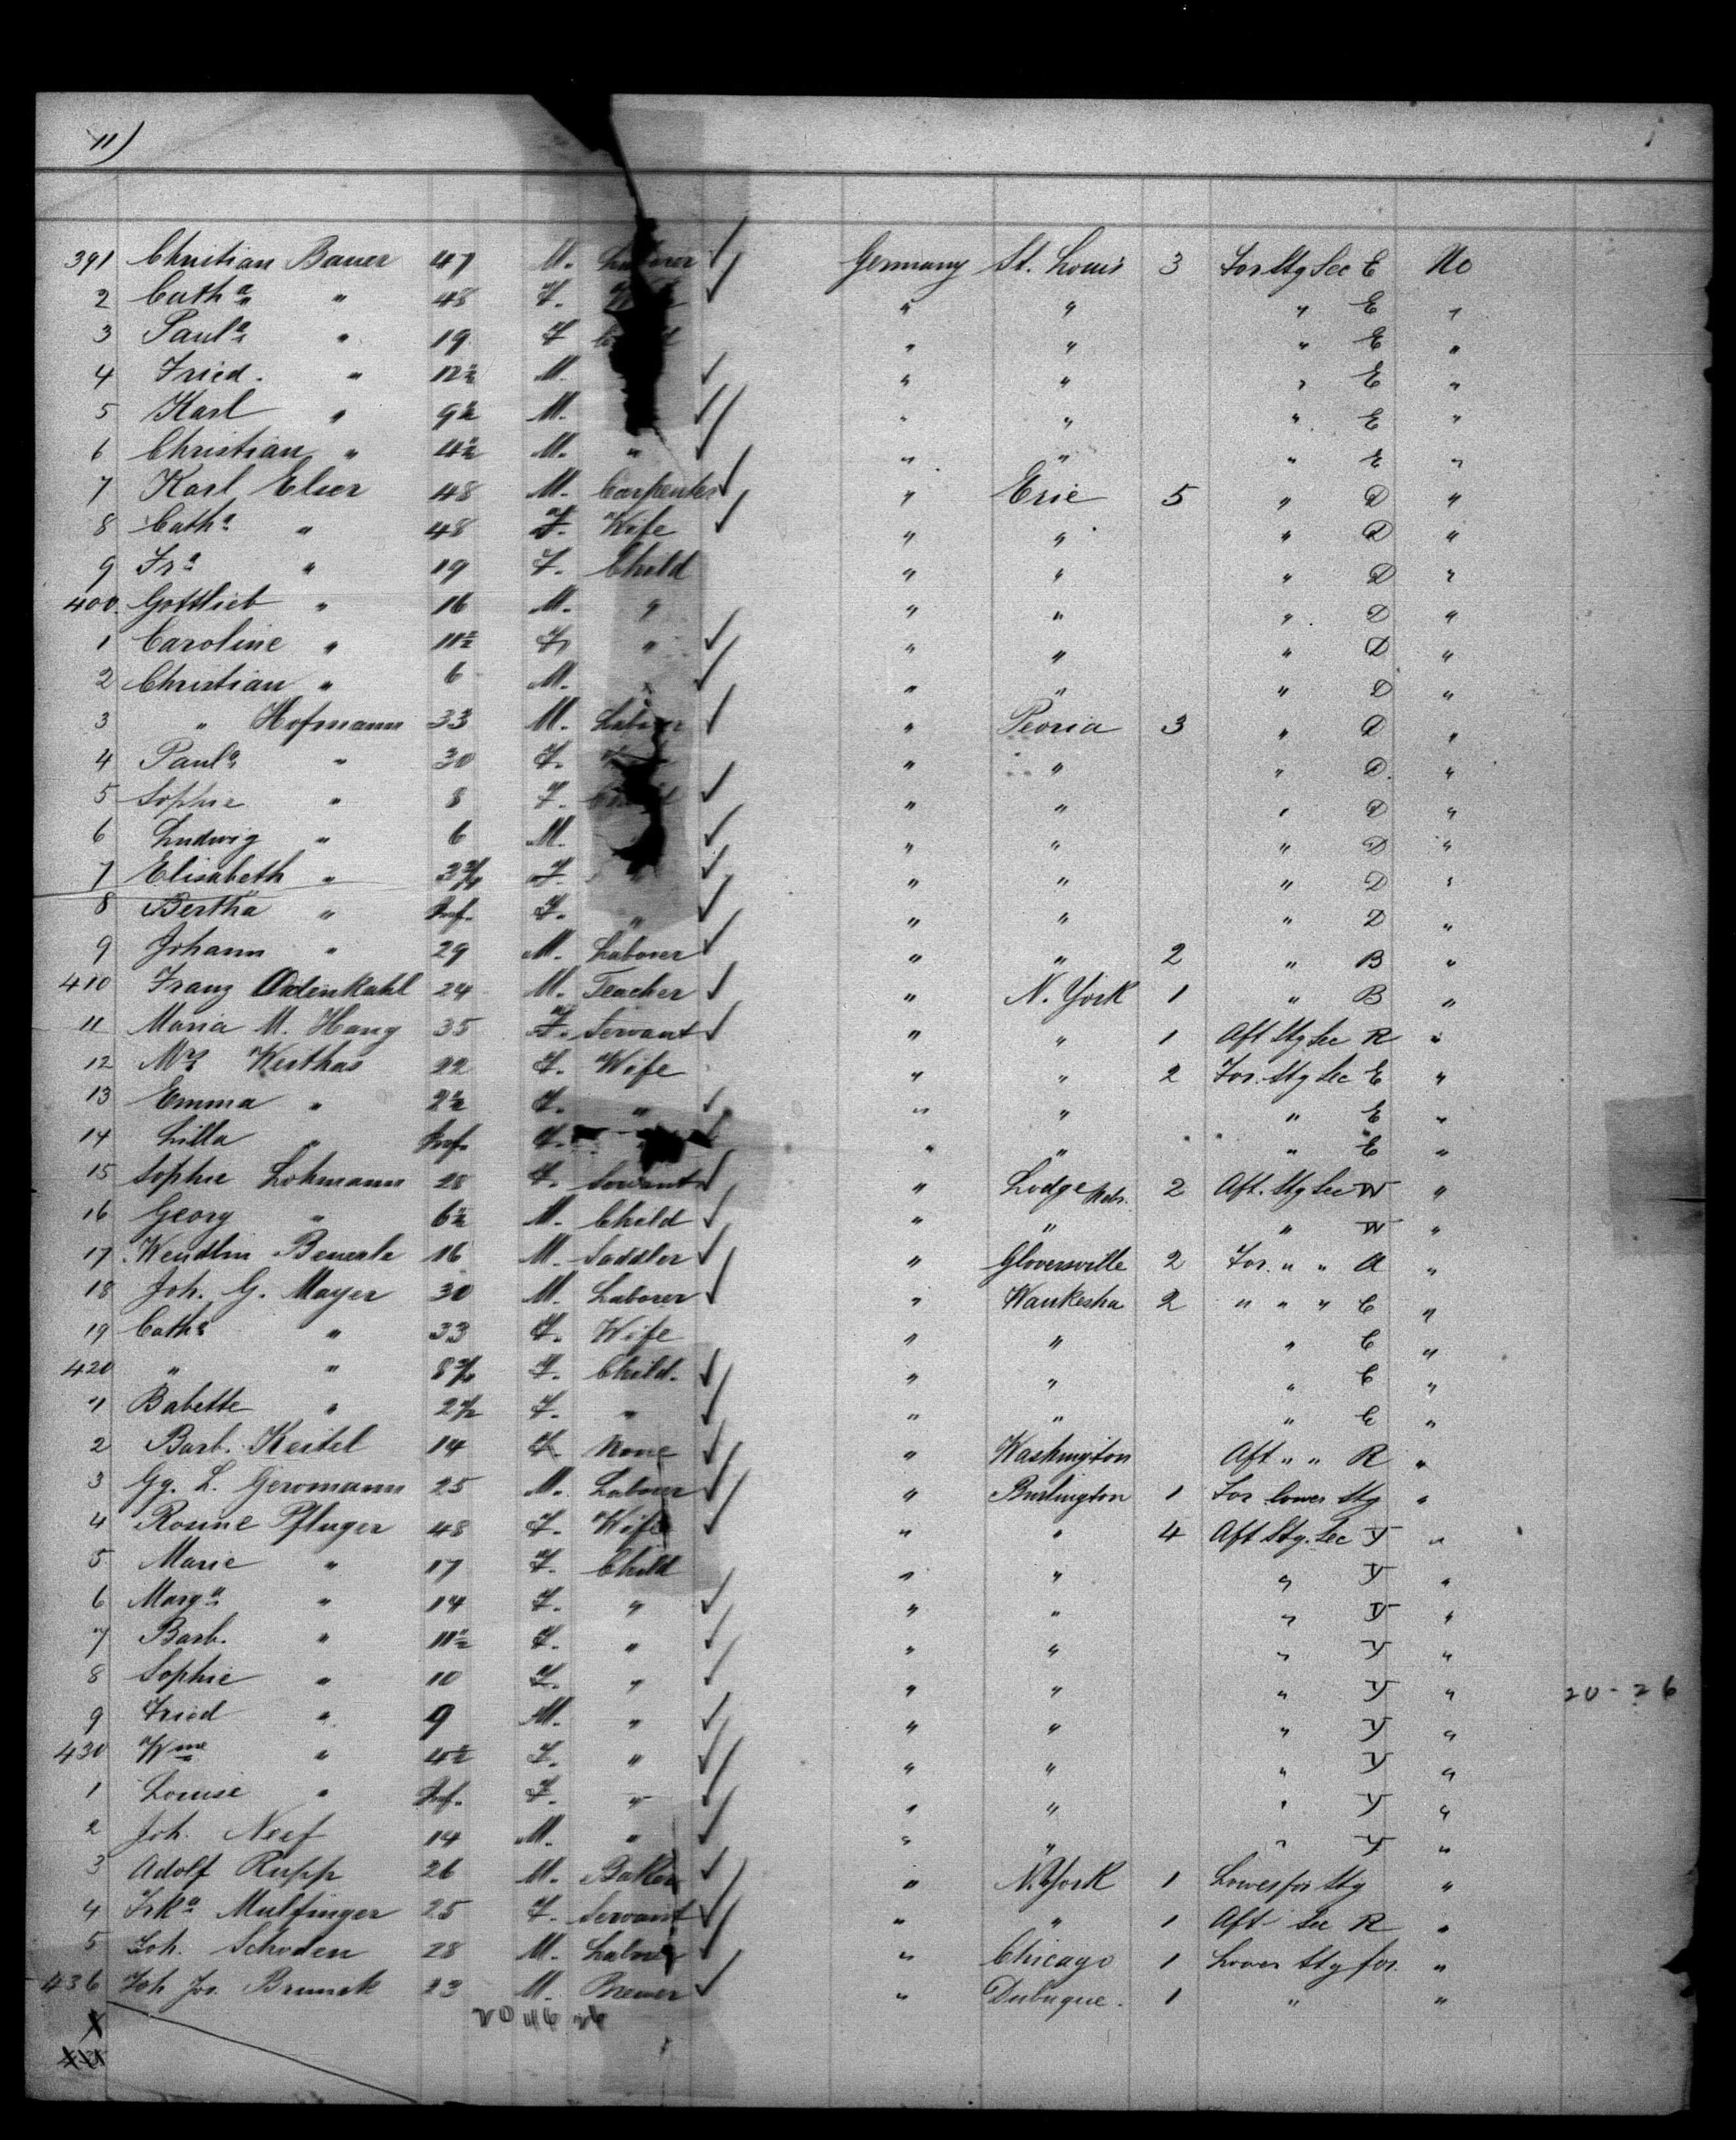 11)
391 Christian Bauer 47 M. Laborer ✓ Germany St. Louis 3 For Stg Sec E No
2 Cath.a " 48 F. ✓ " " " E "
3 Paul.a " 19 F " " " E "
4 Fried. " 12½ M. ✓ " " " E "
5 Karl " 9½ M. ✓ " " " E "
6 Christian " 4½ M. " ✓ " " " E "
7 Karl Elser 48 M. Carpenter ✓ " Erie 5 " D "
8 Cath.a " 48 F. Wife ✓ " " " D "
9 Fr.a " 19 F. Child " " " D "
400. Gottlieb " 16 M. " " " " D "
1 Caroline " 11½ F. " ✓ " " " D "
2 Christian " 6 M. " ✓ " " " D "
3 " Hofmann 33 M. Laborer ✓ " Peoria 3 " D "
4 Paul.a " 30 F. " " " D. "
5 Sophie " 8 F. Child ✓ " " " D "
6 Ludwig " 6 M. ✓ " " " D "
7 Elisabeth " 3¾ F. " ✓ " " " D "
8 Bertha " Inf. F. " ✓ " " " D "
9 Johann " 29 M. Laborer ✓ " " 2 " B "
410 Franz Odenkahl 24 M. Teacher ✓ " N. York 1 " B "
11 Maria M. Haug 35 F. Servant ✓ " " 1 Aft Stg Sec R "
12 Mrs Werthas 22 F. Wife " " 2 For. Stg Sec E "
13 Emma " 2½ F. " ✓ " " " E "
14 Lilla " Inf. F. ✓ " " " E "
15 Sophie Lohmann 28 F. Servant ✓ " Lodge 2 Aft. Stg Sec W "
16 Georg " 6½ M. Child ✓ " " " W "
17 Wendlin Beuerle 16 M. Saddler ✓ " Gloversville 2 For. " " A "
18 Joh. G. Mayer 30 M. Laborer ✓ " Waukesha 2 " " " C "
19 Cath.a " 33 F. Wife " " " C "
420 " " F. Child. ✓ " " " C "
1 Babette " 2½ F. " ✓ " " " C "
2 Barb. Keitel 14 F. None ✓ " Washington Aft " " R "
3 Gg. L. Geromann 25 M. Laborer ✓ " Burlington 1 For lower Stg "
4 Rosine Pfluger 48 F. Wife ✓ " " 4 Aft Stg. Sec Y "
5 Marie " 17 F. Child " " " Y "
6 Marg.a " 14 F. " ✓ " " " Y "
7 Barb. " 11½ F. " ✓ " " " Y "
8 Sophie " 10 F. " ✓ " " " Y " 20-26
9 Fried " 9 M. " ✓ " " " Y "
430 Wme " 4½ F. " ✓ " " " Y "
1 Louise " Inf. F. " ✓ " " " Y "
2 Joh. Neef 14 M. " ✓ " " " Y "
3 Adolf Rupp 26 M. Baker ✓ " N. York 1 Lower for Stg "
4 Frk.a Mulfinger 25 F. Servant ✓ " " 1 Aft Sec R "
5 Joh. Schoden 28 M. Laborer ✓ " Chicago 1 Lower Stg for. "
436 Joh Jos. 23 M. Brewer ✓ " Dubuque. 1 " "
20 46 26
X